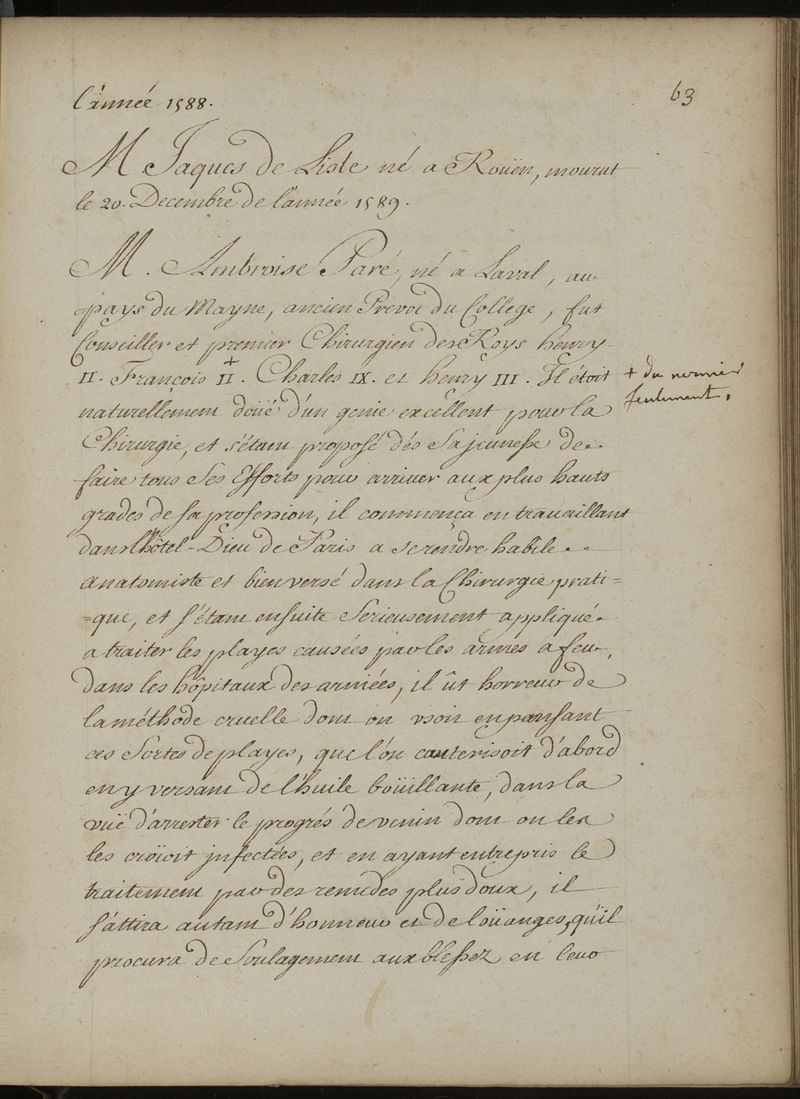 63
l'année 1588.
M Jaques de Lisle né a Roüen, mourut
le 20. Decembre de l'année 1589.
M. Ambroise Paré, né a Laval, au
pays du Mayne, ancien Prevot du College, fut
Conseiller et premier Chirurgien des Roys henry
II. François + II. Charles IX. et henry III. Il étoit
+ du premier
seulement.
naturellement doüé d'un genie excellent pour la
Chirurgie, et s'étant proposé dés sa jeunesse de
faire tous ses Efforts pour arriver aux plus hauts
grades de sa profession, il commença en travaillant
dans l'hôtel-Dieu de Paris a se rendre habile
anatomiste et bien versé dans la Chirurgie prati=
=que, et s'étant ensuite serieusement appliqué
a traiter les playes causées par les armes a feu,
dans les hôpitaux des armées, il ût horreur de
la méthode cruelle dont on usoit en pansant
ces Sortes de playes, que l'on cauterisoit d'abord
en y versant de l'huile boüillante, dans la
vüe d'arrester le progrés de venin dont on les
les croïoit infectées, et en ayant entrepris le
traitement par des remedes plus doux, il
s'attira autant d'honneur et de loüanges, qu'il
procura de Soulagement aux blessez en leur